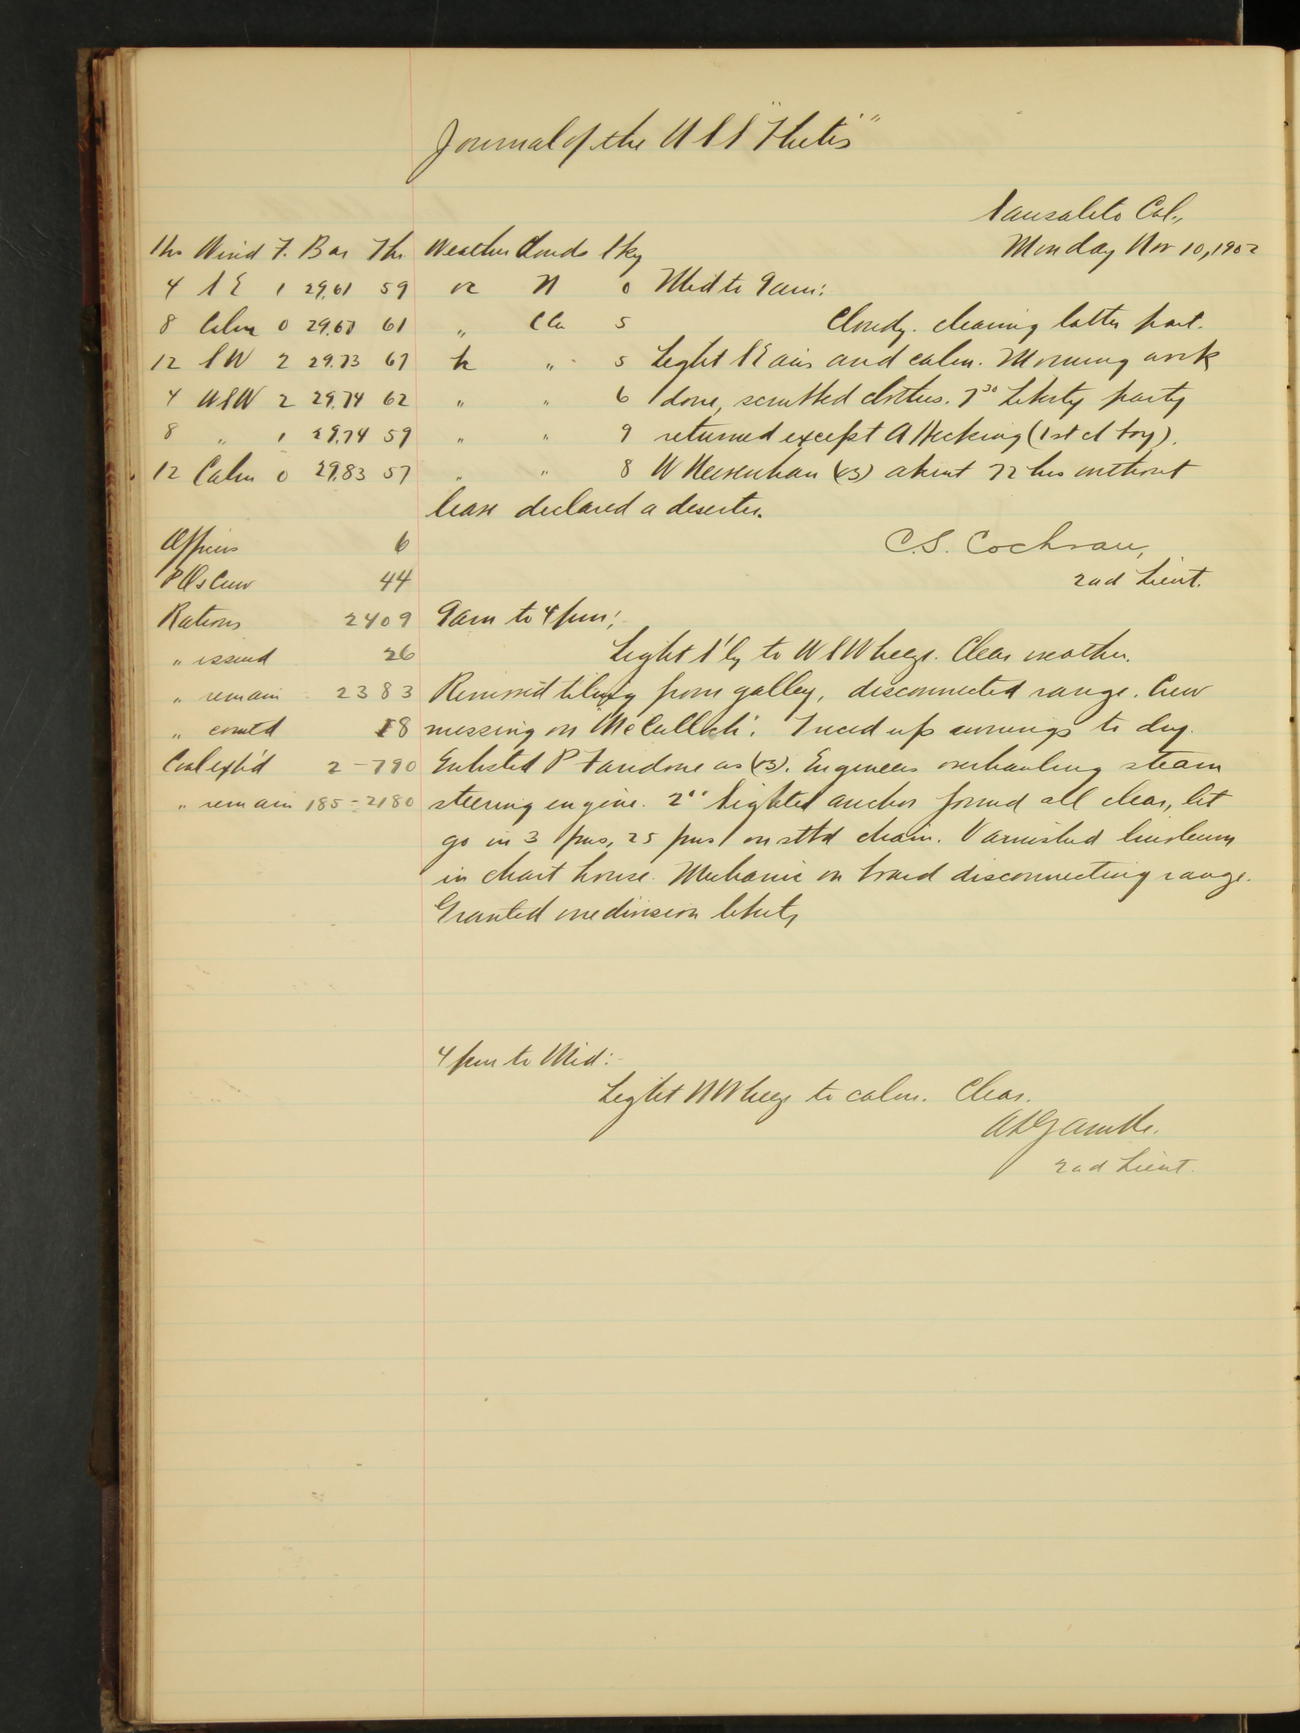 Journal of the U S S "Thetis"
Sausalito Cal.,
Monday Nov 10, 1902
Hrs Wind F. Bar Thr Weather Clouds Sky
4 S E 1 29.61 59 oc N 0 Mid to 9am:
8 Calm 0 29.67 61 " C Cu 5 Cloudy. clearing latter part.
12 S W 2 29.73 67 bc " 5 Light S E airs and calm. Morning work
4 WSW 2 29.74 62 " " 6 done, scrubbed clothes. 7 30 Liberty party
8 " 1 29.74 59 " " 9 returned except A Hecking (1st cl boy).
12 Calm 0 29.83 57 " " 8 W (S) absent 72 hrs without
leave declared a deserter.
Officers 6
C.S. Cochran,
P Os Crew 44
2nd Lieut.
Rations 2409 9am to 4pm:
" issued 26 Light S'ly to W S W breeze. Clear weather.
" remain 2383 Removed tiling from galley, disconnected range. Crew
" com'td 18 messing on "McCulloch". Triced up awnings to dry.
Coal exp'd 2-790 Enlisted P as (S). Engineers overhauling steam
" remain 185-2180 steering engine. 2 00 Sighted anchor found all clear, let
go in 3 fms, 25 fms on stbd chain. Varnished linoleum
in chart house. Mechanic on board disconnecting range.
Granted one division liberty
4 pm to Mid:-
Light NW breeze to calm. Clear.
A L Gamble.
2nd Lieut.